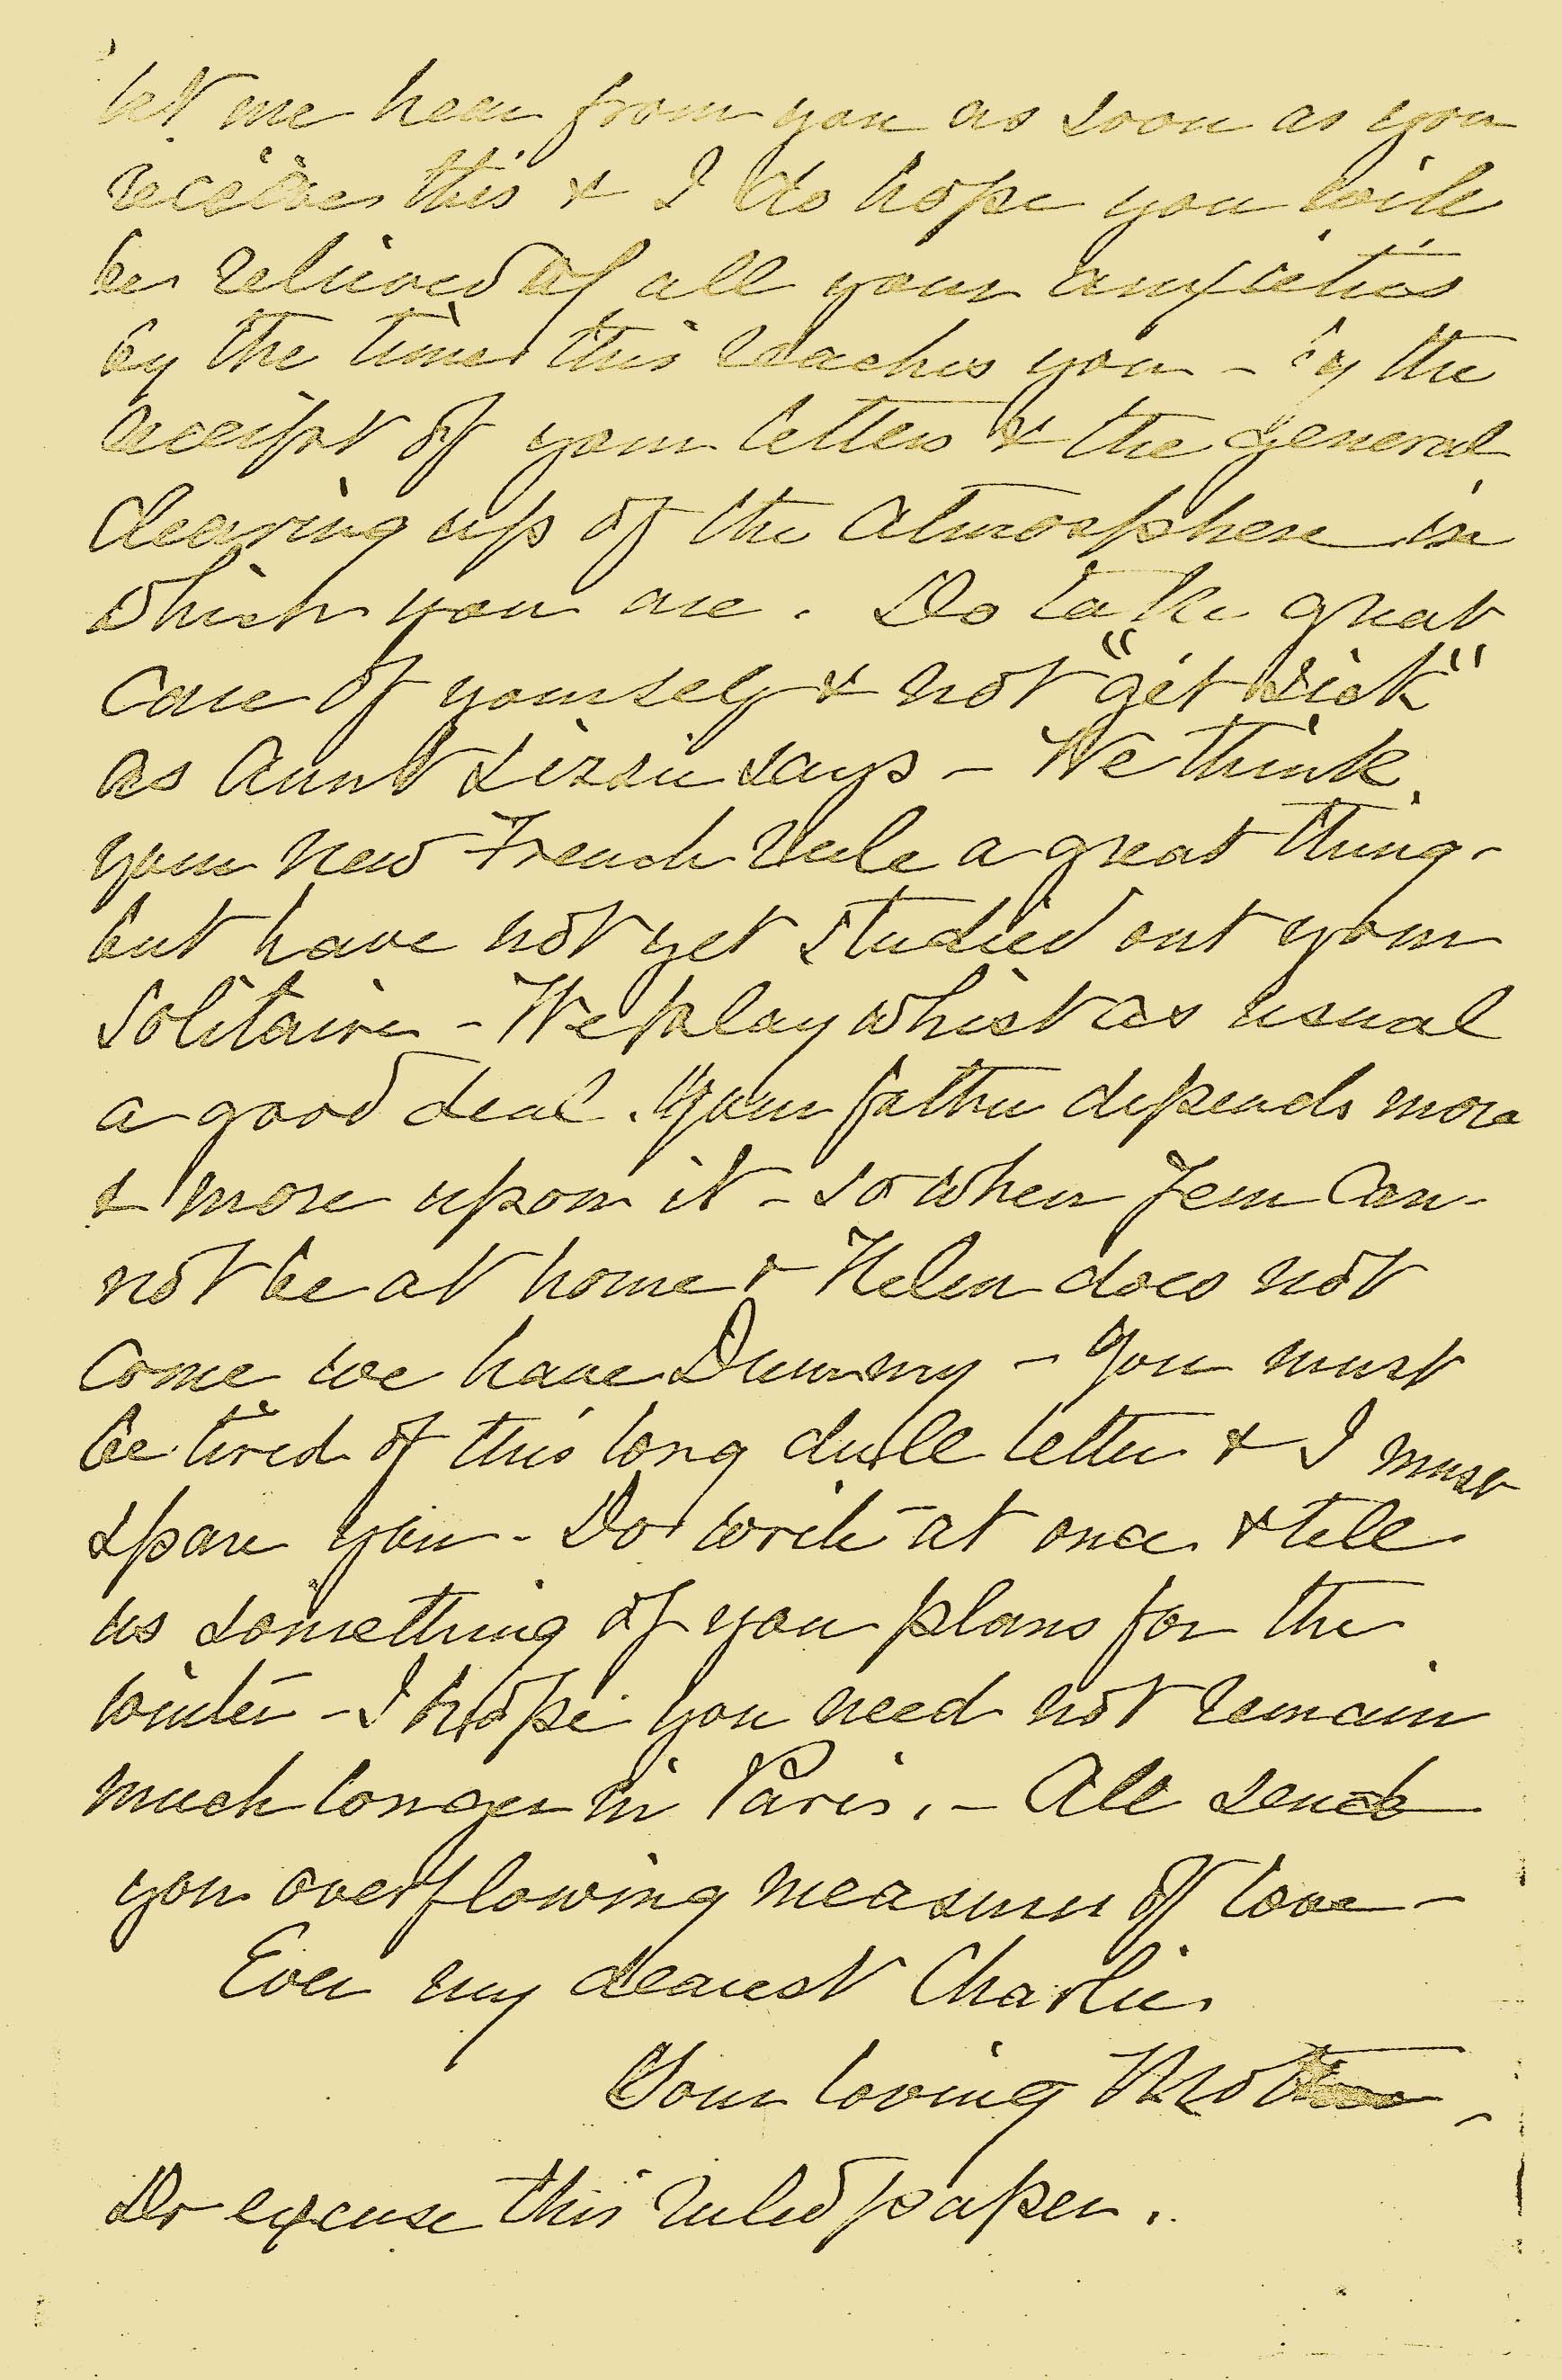 let me hear from you as soon as you
receive this & I do hope you will
be relieved of all your anxieties
by the time this reaches you - by the
receipt of your letters & the general
clearing up of the atmosphere in
which you are. Do take great
care of yourself & not "get sick"
as Aunt Lizzie says - We think
your new French rule a great thing -
but have not yet studied out your
Solitaire - We play whist as usual
a good deal. Your father depends more
& more upon it - so when Jem can-
not be at home & Helen does not
come we have Dummy - You must
be tired of this long dull letter & I must
spare you - Do write at once & tell
us something of your plans for the
winter - I hope you need not remain
much longer in Paris. - All send
you overflowing measures of love -
Ever my dearest Charlie
Your loving Mother -
Do excuse this ruled paper.